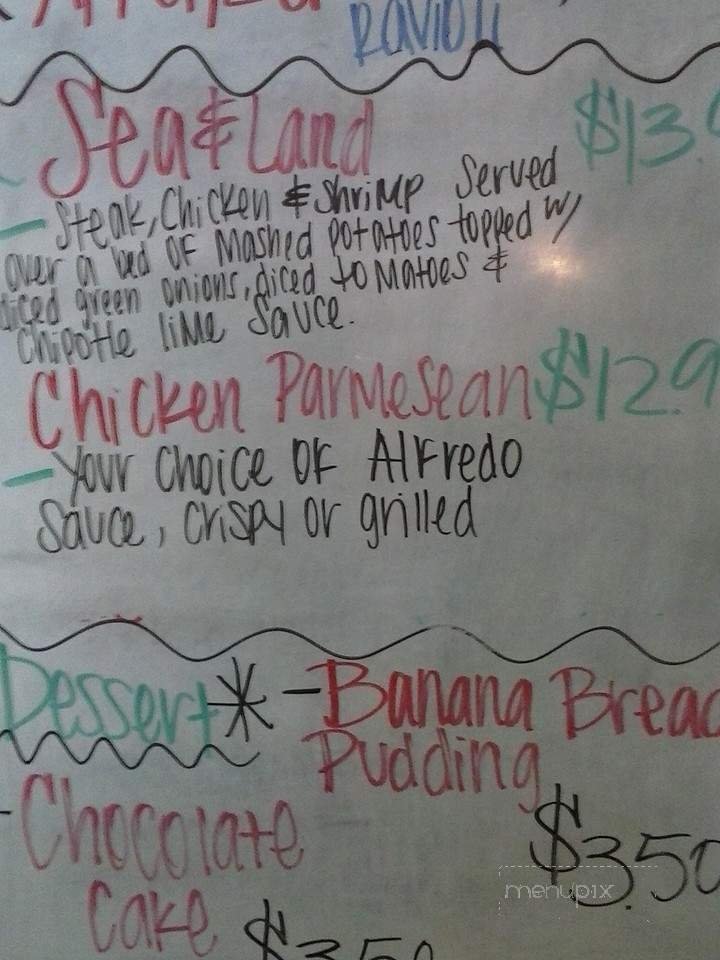 Ravioli
Sea & Land $13.9
- Steak, Chicken & Shrimp Served
over a bed of Mashed potatoes topped w/
diced green onions, diced tomatoes &
Chipotle lime Sauce.
Chicken Parmesean $12.9
- Your Choice of Alfredo
Sauce, crispy or grilled
Dessert* - Banana Bread
Pudding
$3.50
- Chocolate
Cake $3.50
menupix